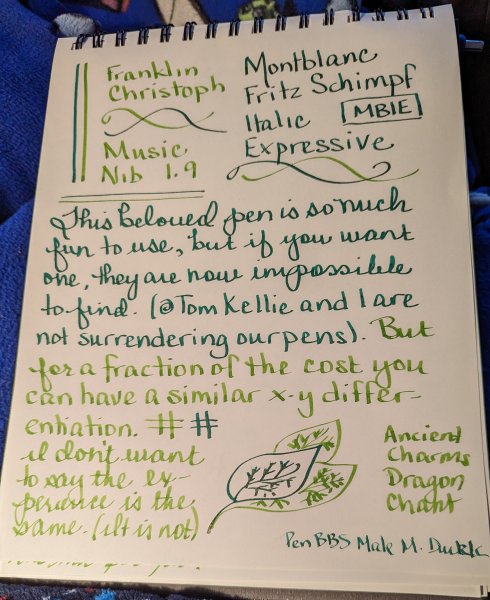 Franklin
Christoph
Music
Nib 1.9
Montblanc
Fritz Schimpf
Italic MBIE
Expressive
This beloved pen is so much
fun to use, but if you want
one, they are now impossible
to find. (@TomKellie and I are
not surrendering our pens). But
for a fraction of the cost you
can have a similar x-y differ-
entiation. # #
I don't want
to say the ex-
perience is the
same. (It is not)
Ancient
Charms
Dragon
Chant
Pen BBS M.